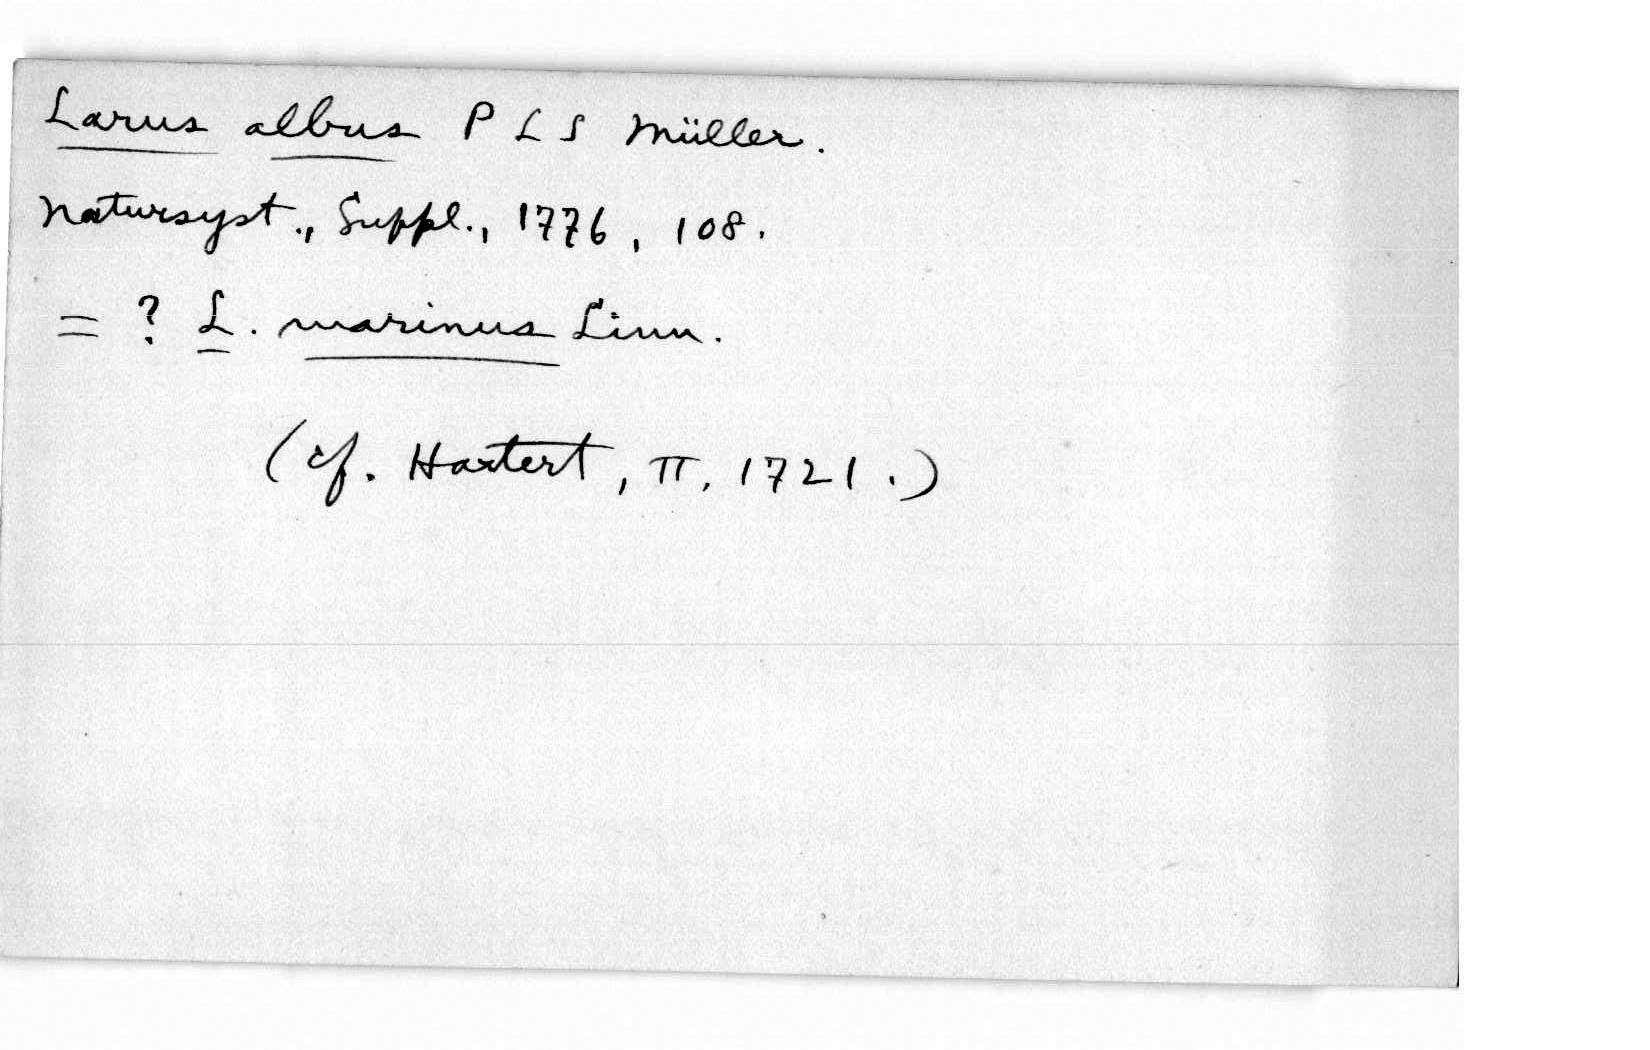 Larus albus P L S Müller.
Natursyst., Suppl., 1776, 108.
= ? L. marinus Linn.
(cf. Hartert, II, 1721.)